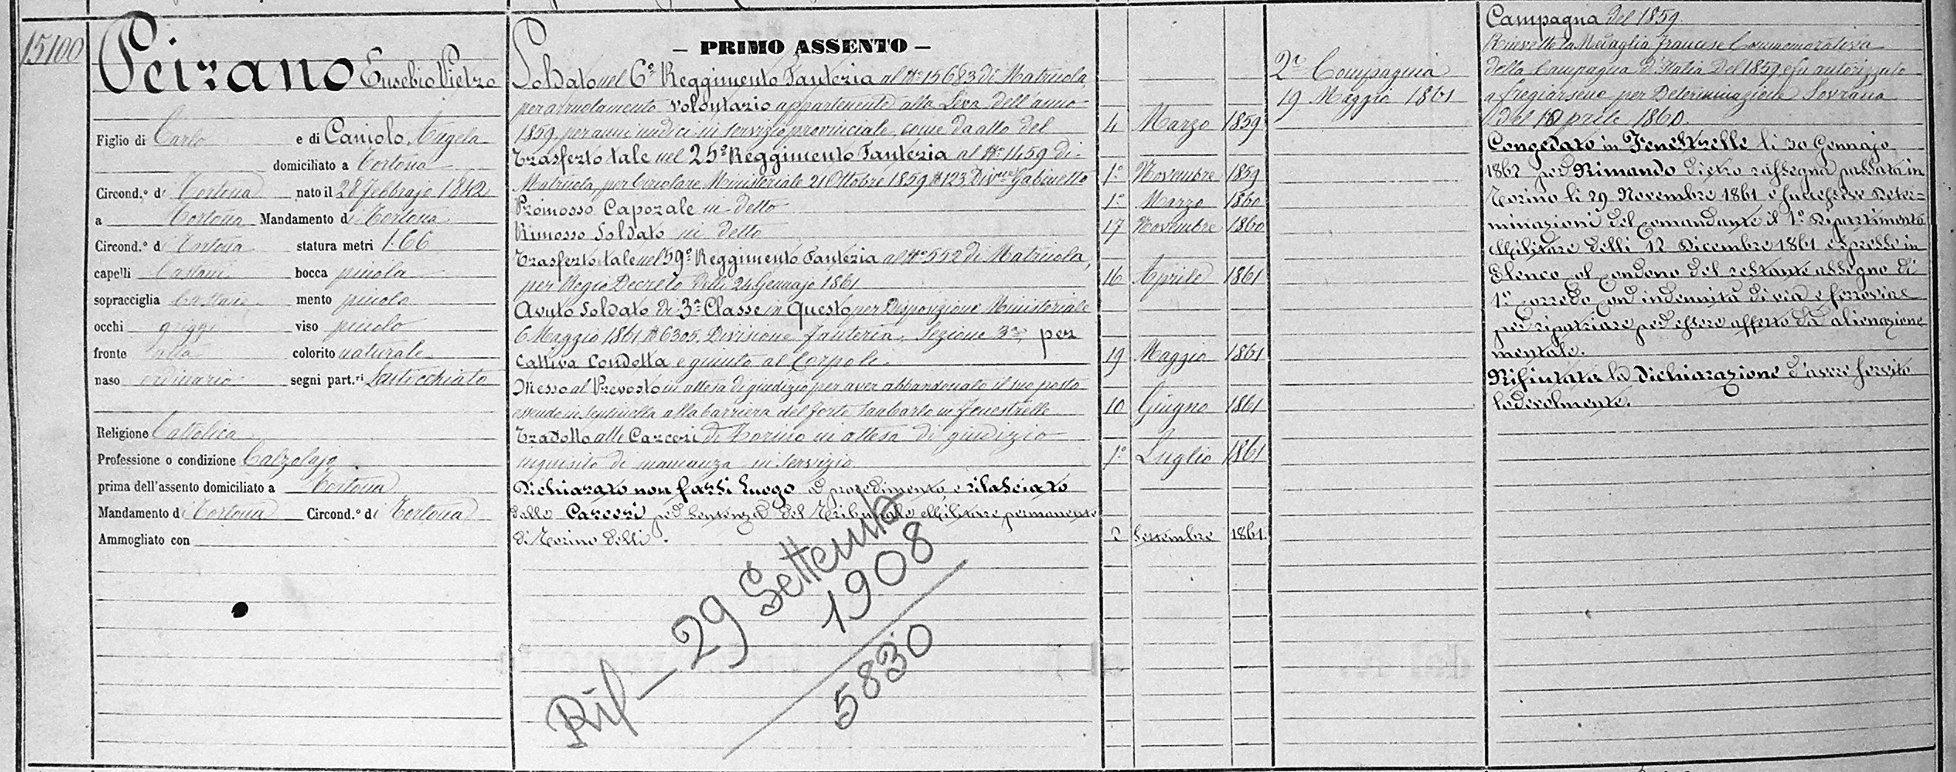 15100
Peirano Eusebio Pietro
Figlio di Carlo e di Caniolo Angela
domiciliato a Tortona
Circond.º di Tortona nato il 28 febbrajo 1842
a Tortona Mandamento di Tortona
Circond.º di Tortona statura metri 1.66
capelli Castani bocca piccola
sopracciglia Castani mento piccolo
occhi griggi viso piccolo
fronte alta colorito naturale
naso ordinario segni part.ri
Religione Cattolica
Professione o condizione Calzolajo
prima dell'assento domiciliato a Tortona
Mandamento di Tortona Circond.º di Tortona
Ammogliato con
— PRIMO ASSENTO —
Soldato nel 6º Reggimento Fanteria al Nº 15683 di Matricola
per arruolamento volontario appartenente alla Leva dell'anno
1859 per anni undici in servizio provinciale come da atto del 4 Marzo 1859
Trasferto tale nel 25º Reggimento Fanteria al Nº 1459 di
Matricola, per Circolare Ministeriale 21 Ottobre 1859 Nº 123 Gabinetto 1º Novembre 1859
Promosso Caporale in detto 1º Marzo 1860
Rimosso Soldato in detto 17 Novembre 1860
Trasferto tale nel 59º Reggimento Fanteria al Nº 552 di Matricola,
per Regio Decreto delli 24 Gennajo 1861 16 Aprile 1861
Avuto Soldato di 3ª Classe in Questo per Disposizione Ministeriale
6 Maggio 1861 Nº 6305. Divisione fanteria, Sezione 3ª, per
Cattiva Condotta e giunto al Corpo li 19 Maggio 1861
Messo al Prevosto in attesa di giudizio per aver abbandonato il suo posto
essendo in sentinella alla barriera del forte San Carlo in Fenestrelle 10 Giugno 1861
Tradotto alle Carceri di Torino in attesa di giudizio
inquisito di mancanza in servizio 1º Luglio 1861
Dichiarato non farsi luogo a procedimento e rilasciato
dalle Carceri per Sentenza del Tribunale Militare permanente
di Torino delli. 2 Settembre 1861
Ril — 29 Settembre
1908
5830
2ª Compagnia
19 Maggio 1861
Campagna del 1859.
Ricevette la Medaglia francese Commemorativa
della Campagna d'Italia del 1859 e fu autorizzato
a fregiarsene per Determinazione Sovrana
del Aprile 1860.
Congedato in Fenestrelle li 30 Gennajo
1862 per Rimando dietro rassegna passata in
Torino li 29 Novembre 1861 e successive Deter-
minazioni del Comandante il 1º Dipartimento
Militare delli 12 Dicembre 1861 espresse in
Elenco, col condono del restante assegno di
1º corredo, con indennità di via e ferrovia
per ripatriare per essere affetto da alienazione
mentale.
Rifiutata la Dichiarazione d'avere servito
lodevolmente.